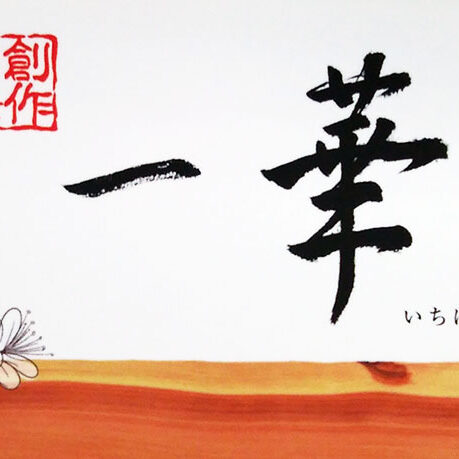 創作
一華
いち